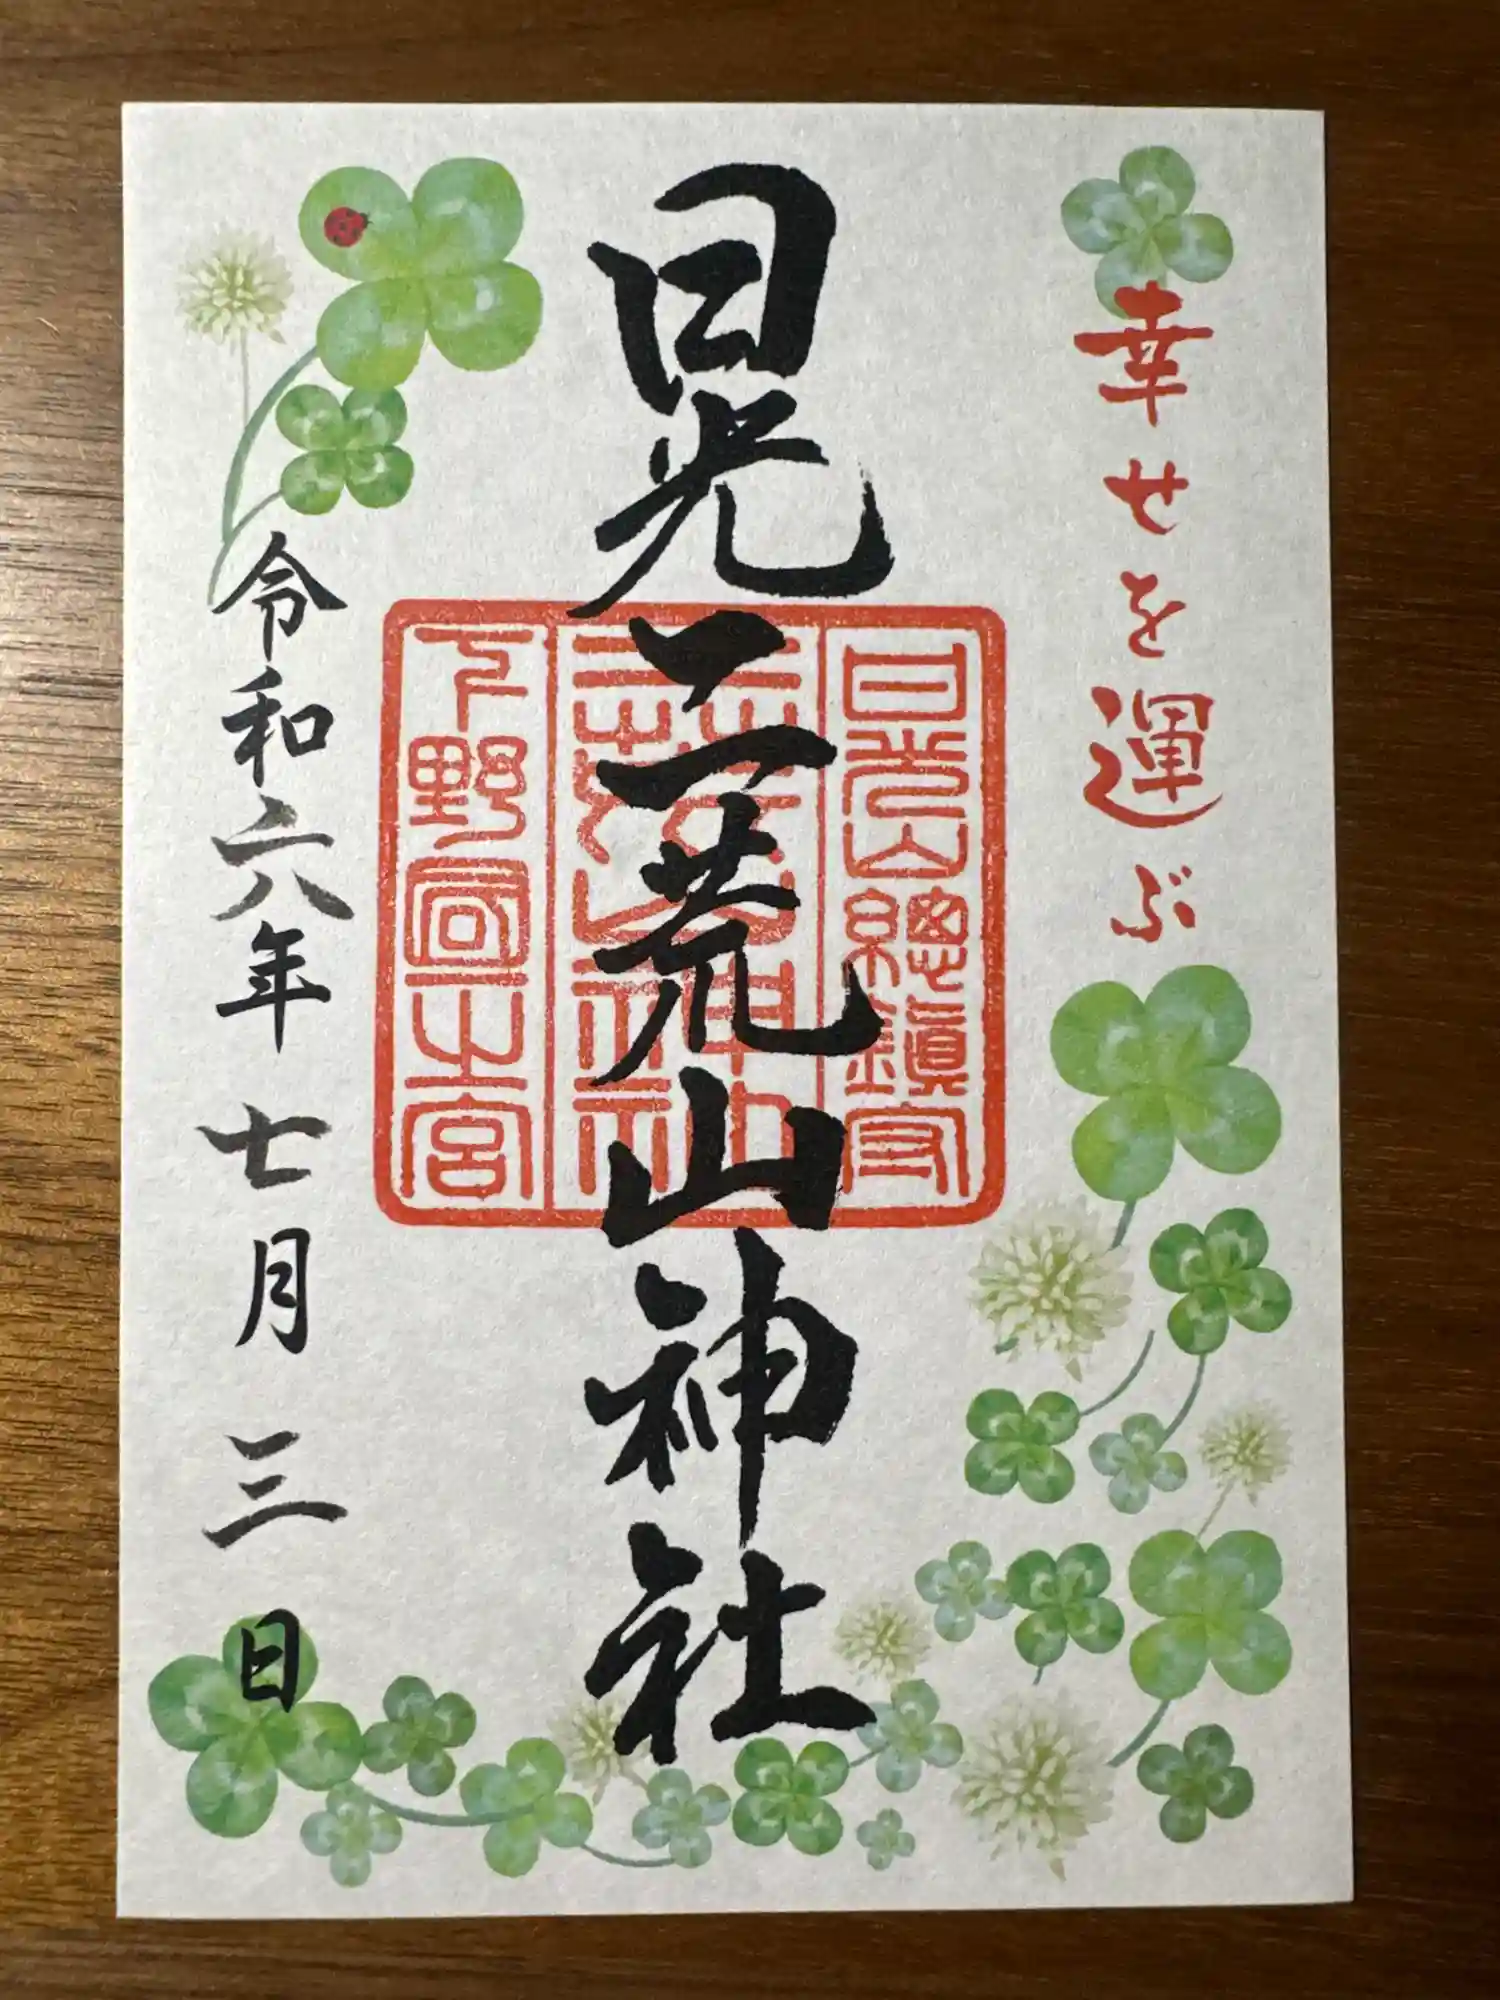 幸せを運ぶ
日光二荒山神社
日光山總鎮守
下野國一之宮
令和六年七月三日